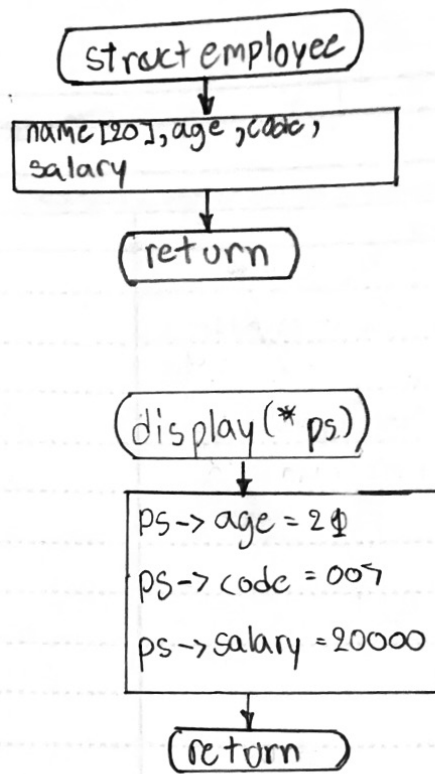 struct employee
name [20], age, code,
salary
return
display (* ps)
ps -> age = 21
ps -> code = 007
ps -> salary = 20000
return